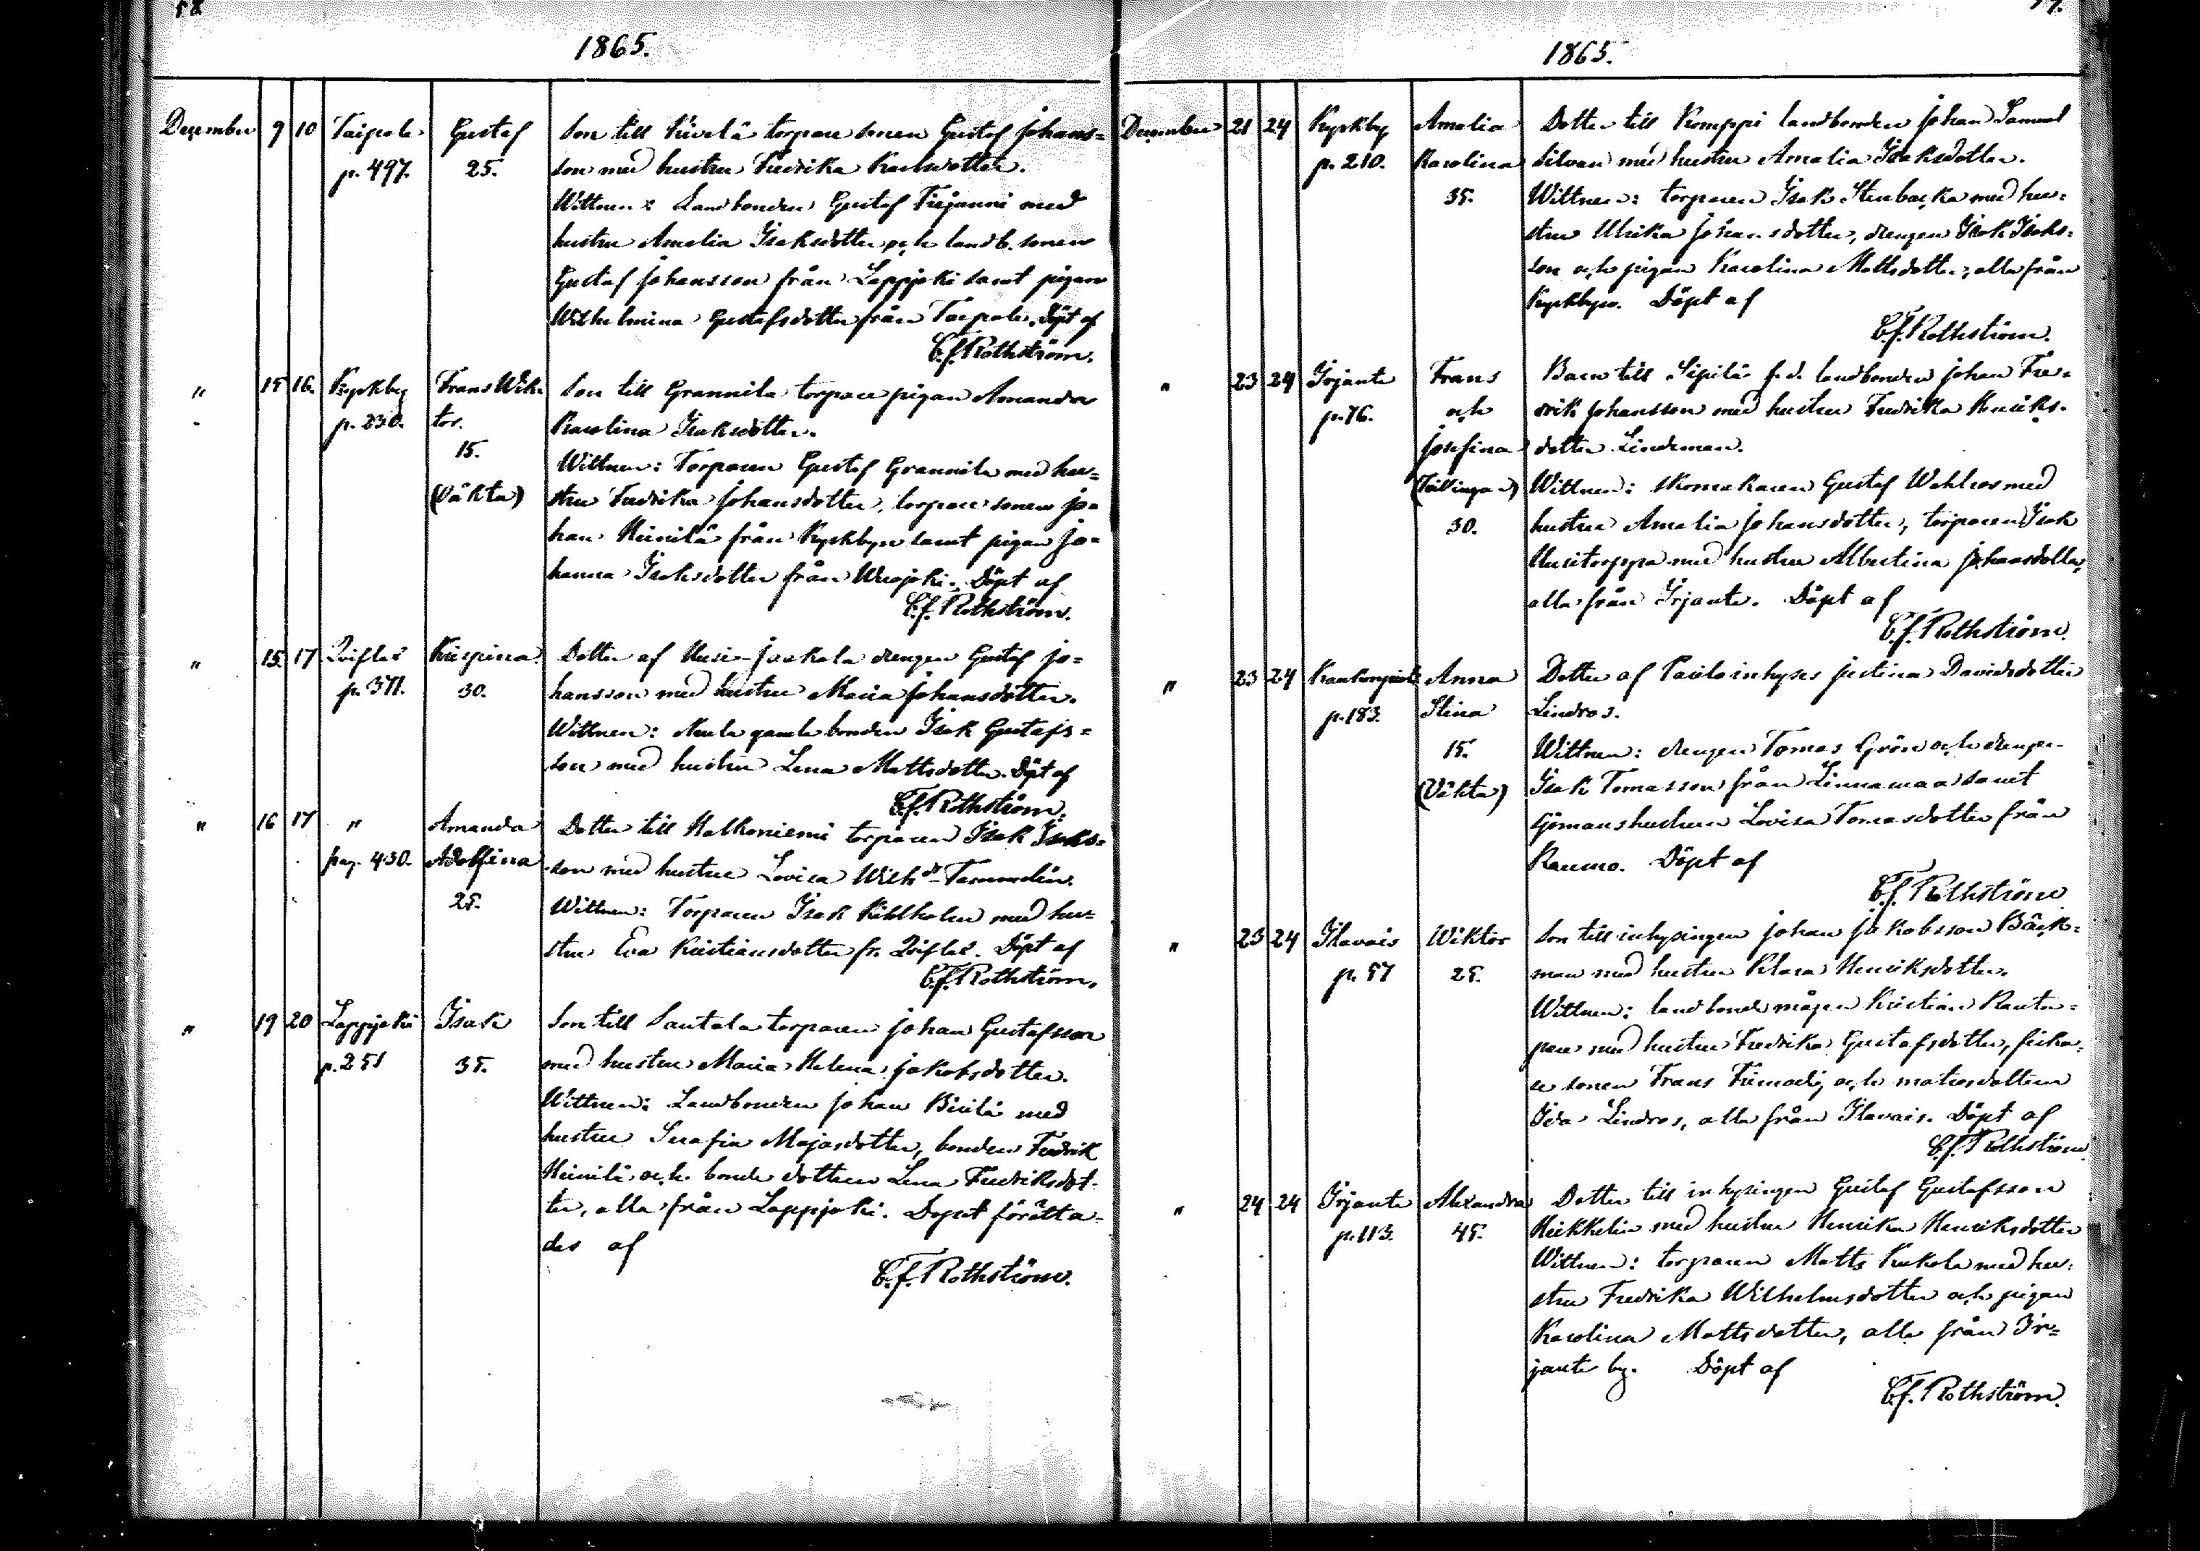 58
1865.
December 9 10 Taipale Gustaf Son till Kivelä torpare sonen Gustaf Johans=
p. 497. 25. son med hustru Fredrika Karlsdotter.
Wittnen: Landbonden Gustaf Teijonni med
hustru Amalia Isaksdotter och landb. sonen
Gustaf Johansson från Lappjoki samt pigan
Wilhelmina Gustafsdotter från Taipale. Döpt af
C.J. Rothström.
" 15 16. Kyrkby Frans Wik- Son till Grannila torpare pigan Amanda
p. 230. tor. Karolina Isaksdotter.
15.
(Oäkta) Wittnen: Torparen Gustaf Grannila med hu=
stru Fredrika Johansdotter, torpare sonen Jo=
han Heinilä från Kyrkbyn samt pigan Jo=
hanna Isaksdotter från Wuojoki. Döpt af
C.J. Rothström.
" 15. 17 Qviflas Krispina. Dotter af Uusi-Jaakola drengen Gustaf Jo=
p. 371. 30. hansson med hustru Maria Johansdotter.
Wittnen: gamle bonden Isak Gustafs=
son med hustru Lena Mattsdotter. Döpt af
C.J. Rothström.
" 16 17 " Amanda Dotter till Halkoniemi torparen Isak Isaks=
pag. 430. Adolfina son med hustru Lovisa Wilh.dr Tammelin.
25. Wittnen: Torparen Isak Kihlholm med hu=
stru Eva Kristiansdotter fr. Qviflas. Döpt af
C.J. Rothström.
" 19 20 Lappjoki Isak Son till Santala torparen Johan Gustafsson
p. 251 35. med hustru Maria Helena Jakobsdotter.
Wittnen: Landbonden Johan med
hustru Serafia Majasdotter, bonden Fredrik
Heinilä och bonde dottren Lena Fredriksdot-
ter, alla från Lappjoki. Dopet förätta-
des af
C.J. Rothström.
1865.
December 21 24 Kyrkby Amalia Dotter till Komppi landbonden Johan Samuel
p. 210. Karolina Silvan med hustru Amalia Isaksdotter.
35. Wittnen: torparen Isak Stenbacka med hu=
stru Ulrika Johansdotter, drengen Isak Isaks=
son och pigan Karolina Mattsdotter, alla från
Kyrkbyn. Döpt af
C.J. Rothström.
" 23 24 Irjante Frans Barn till Sipilä f.d. landbonden Johan Fre=
p. 76. och drik Johansson med hustru Fredrika Henriks=
Josefina dotter Lindeman.
(Tvillingar) Wittnen: skomakaren Gustaf Wahlros med
30. hustru Amalia Johansdotter, torparen Isak
Uusitorppa med hustru Albertina Johansdotter,
alla från Irjante. Döpt af
C.J. Rothström.
" 23 24 Anna Dotter af inhyses Justina Davidsdotter
p. 183. Stina Lindros.
15. Wittnen: drengen Tomas Grön och drengen
(Oäkta) Isak Tomasson från Linnamaa samt
sjömanshustrun Lovisa Tomasdotter från
Raumo. Döpt af
C.J. Rothström
" 23 24 Ilavais Wiktor Son till inhysingen Johan Jakobsson Bäck=
p. 57 25. man med hustru Klara Henriksdotter.
Wittnen: landbonde mågen Kristian Ranta=
pere med hustru Fredrika Gustafsdotter, fiska=
re sonen Frans och matrosdottren
Ida Lindros, alla från Ilavais. Döpt af
C.J. Rothström
" 24 24 Irjante Alexandra Dotter till inhysingen Gustaf Gustafsson
p. 113. 45. Heikkelin med hustru Henrika Henriksdotter
Wittnen: torparen Matts Kukola med hu=
stru Fredrika Wilhelmsdotter och pigan
Karolina Mattsdotter, alla från Ir=
jante by. Döpt af
C.J. Rothström.